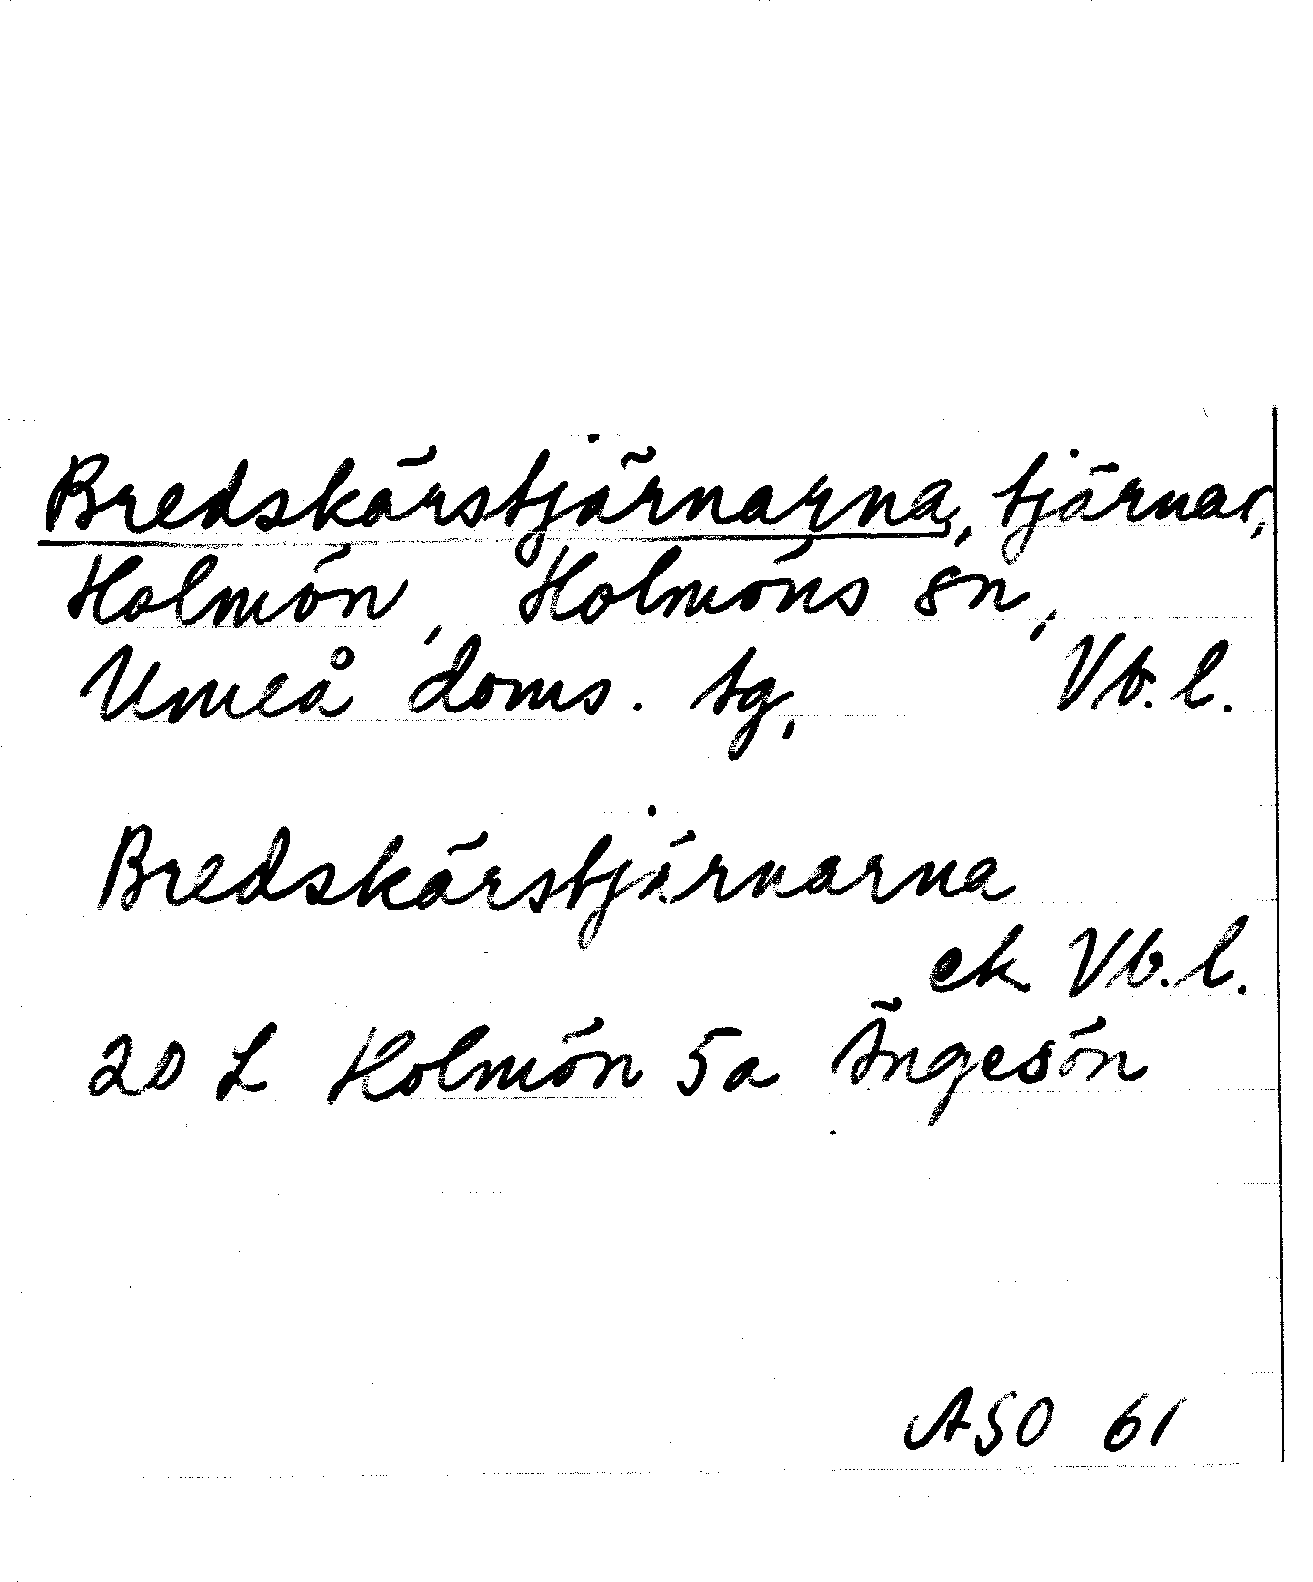 Bredskärstjärnarna, tjärnar,
Holmön, Holmöns sn,
Umeå doms. tg, Vb. l.
Bredskärstjärnarna
ek Vb. l.
20 L Holmön 5a Ängesön
ASO 61